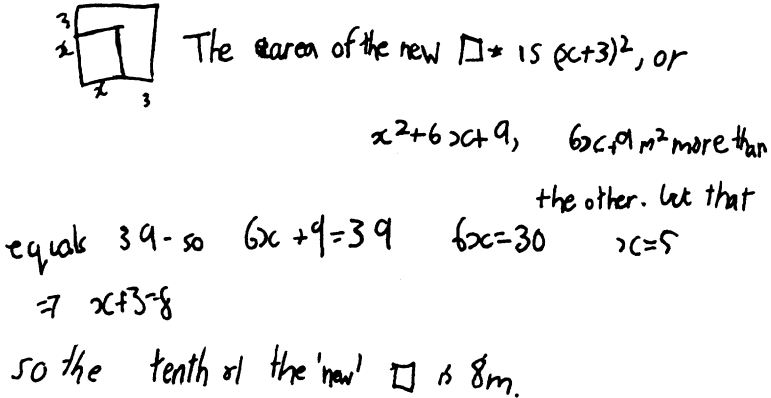 3
x
x
3
The area of the new □ is (x+3)², or
x²+6x+9, 6x+9 m² more than
the other. but that
equals 39 - so 6x+9=39 6x=30 x=5
⇒ x+3=8
so the length of the 'new' □ is 8m.